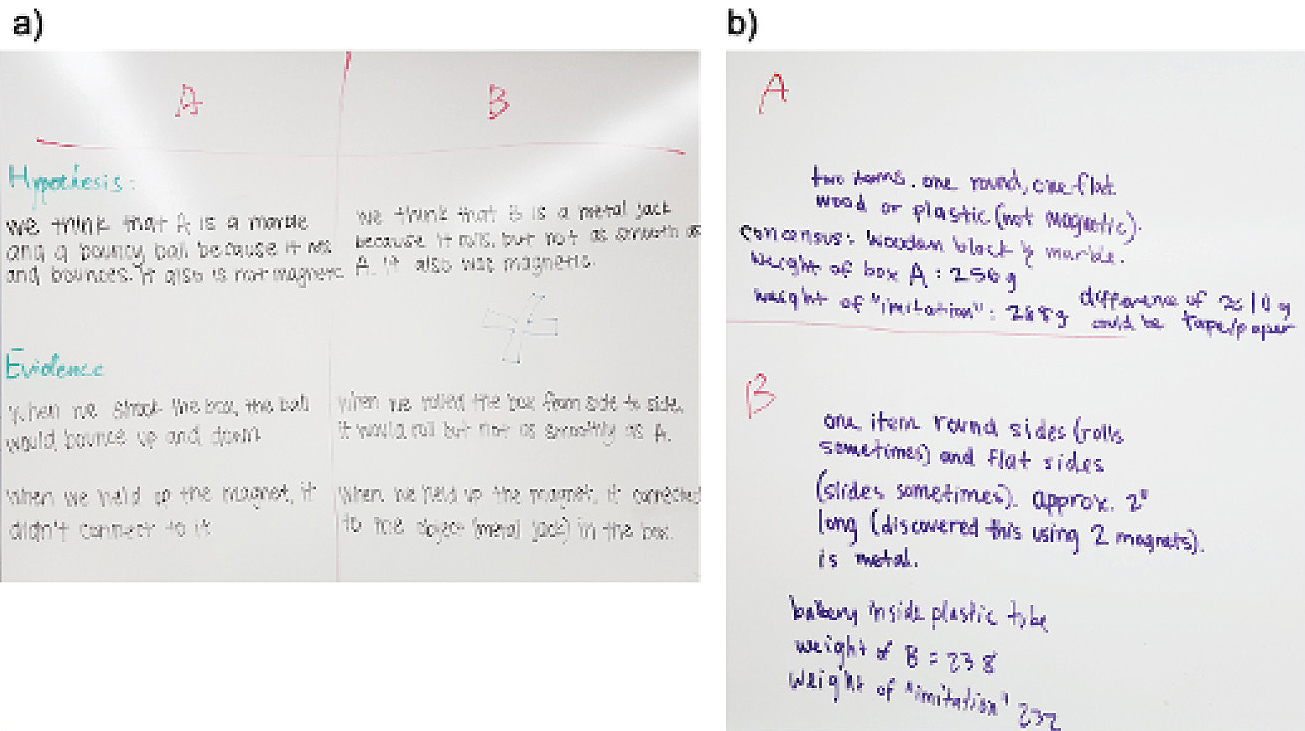 a)
A
B
Hypothesis:
we think that A is a marble
and a bouncy ball because it
and bounces. It also is not magnetic
we think that B is a metal jack
because it rolls, but not as smooth as
A. It also was magnetic.
Evidence
When we shook the box, the ball
would bounce up and down
When we held up the magnet, it
didn't connect to it
When we rolled the box from side to side,
it would roll but not as smoothly as A.
When we held up the magnet, it connected
to the object (metal jack) in the box.
b)
A
two items. one round, one flat
wood or plastic (not magnetic).
concensus: wooden block & marble.
weight of box A: g
weight of "imitation": g
difference of 10 g
could be tape/paper
B
one item round sides (rolls
sometimes) and flat sides
(slides sometimes). approx. 2"
long (discovered this using 2 magnets).
is metal.
battery inside plastic tube
weight of B = 238
weight of "imitation" 232